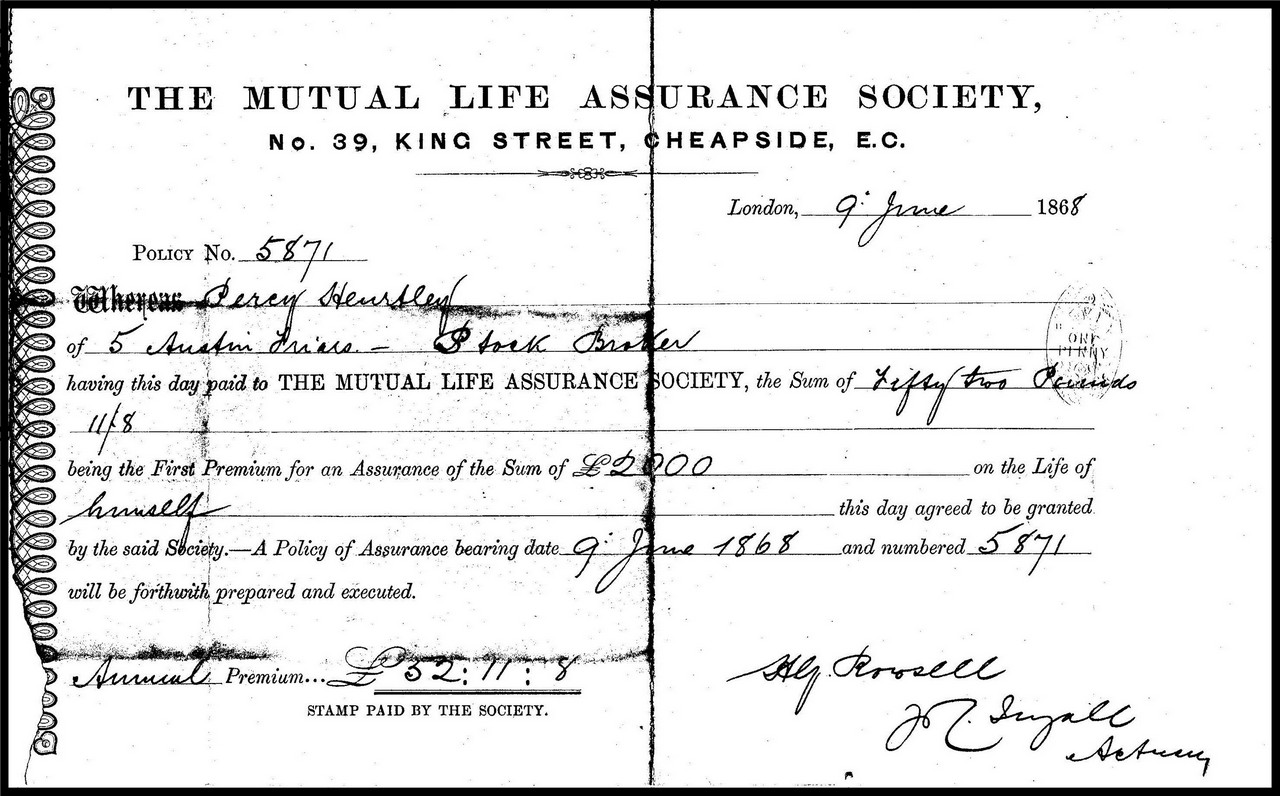 THE MUTUAL LIFE ASSURANCE SOCIETY,
No. 39, KING STREET, CHEAPSIDE, E.C.
London, 9 June 1868
POLICY No. 5871
Whereas Percy Heurtley
of 5 Austin Friars. – Stock Broker
having this day paid to THE MUTUAL LIFE ASSURANCE SOCIETY, the Sum of Fifty two Pounds
11/8
being the First Premium for an Assurance of the Sum of £2000 on the Life of
himself this day agreed to be granted
by the said Society.—A Policy of Assurance bearing date 9 June 1868 and numbered 5871
will be forthwith prepared and executed.
Annual Premium... £52:11:8
STAMP PAID BY THE SOCIETY.
ONE
PENNY
Rowsell
Ingall
Actuary